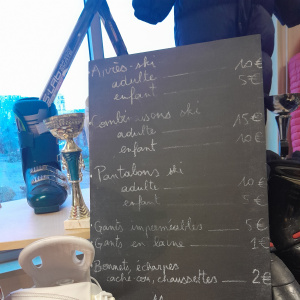 • Après-ski
adulte 10€
enfant 5€
• Combinaisons ski
adulte 15€
enfant 10€
• Pantalons ski
adulte 10€
enfant 5€
• Gants imperméables 5€
• Gants en laine 1€
Bonnets, écharpes
cache cou, chaussettes 2€